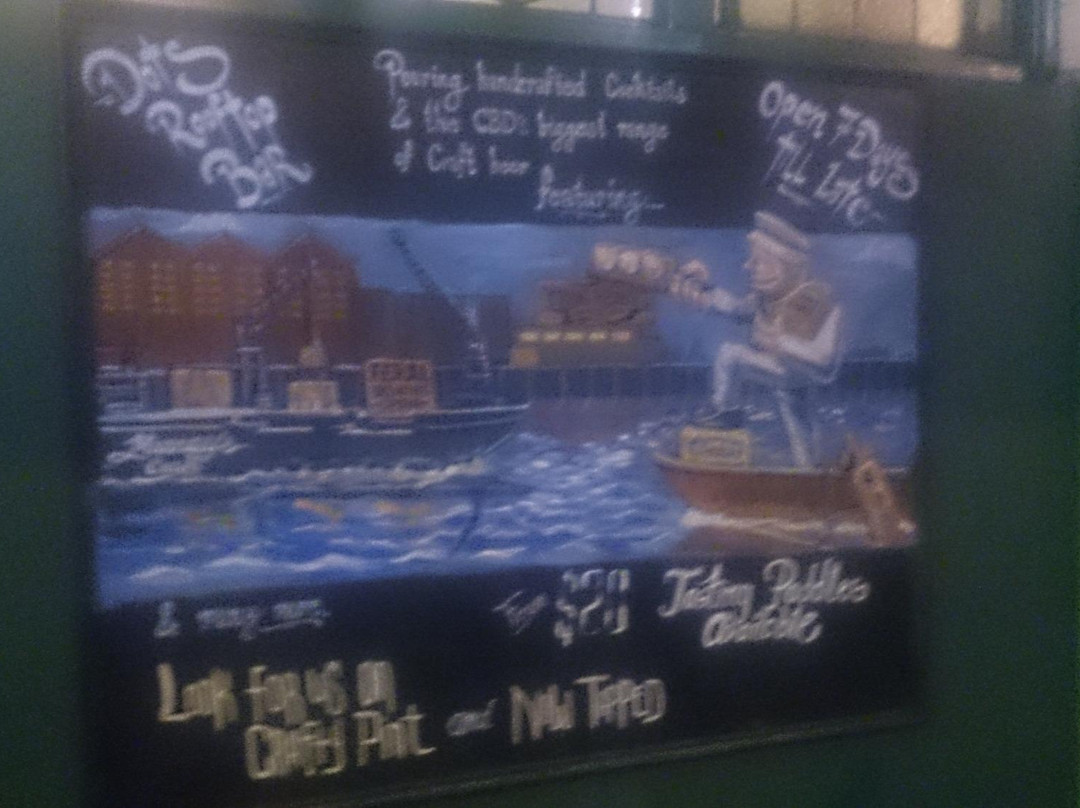 Dot's
Rooftop
Bar
Pouring handcrafted Cocktails
& the CBD's biggest range
of Craft beer
featuring...
Open 7 Days
till Late
& many more
From $20
Tasting Paddles
available
Look for us on
Crafty Pint and Now Tapped